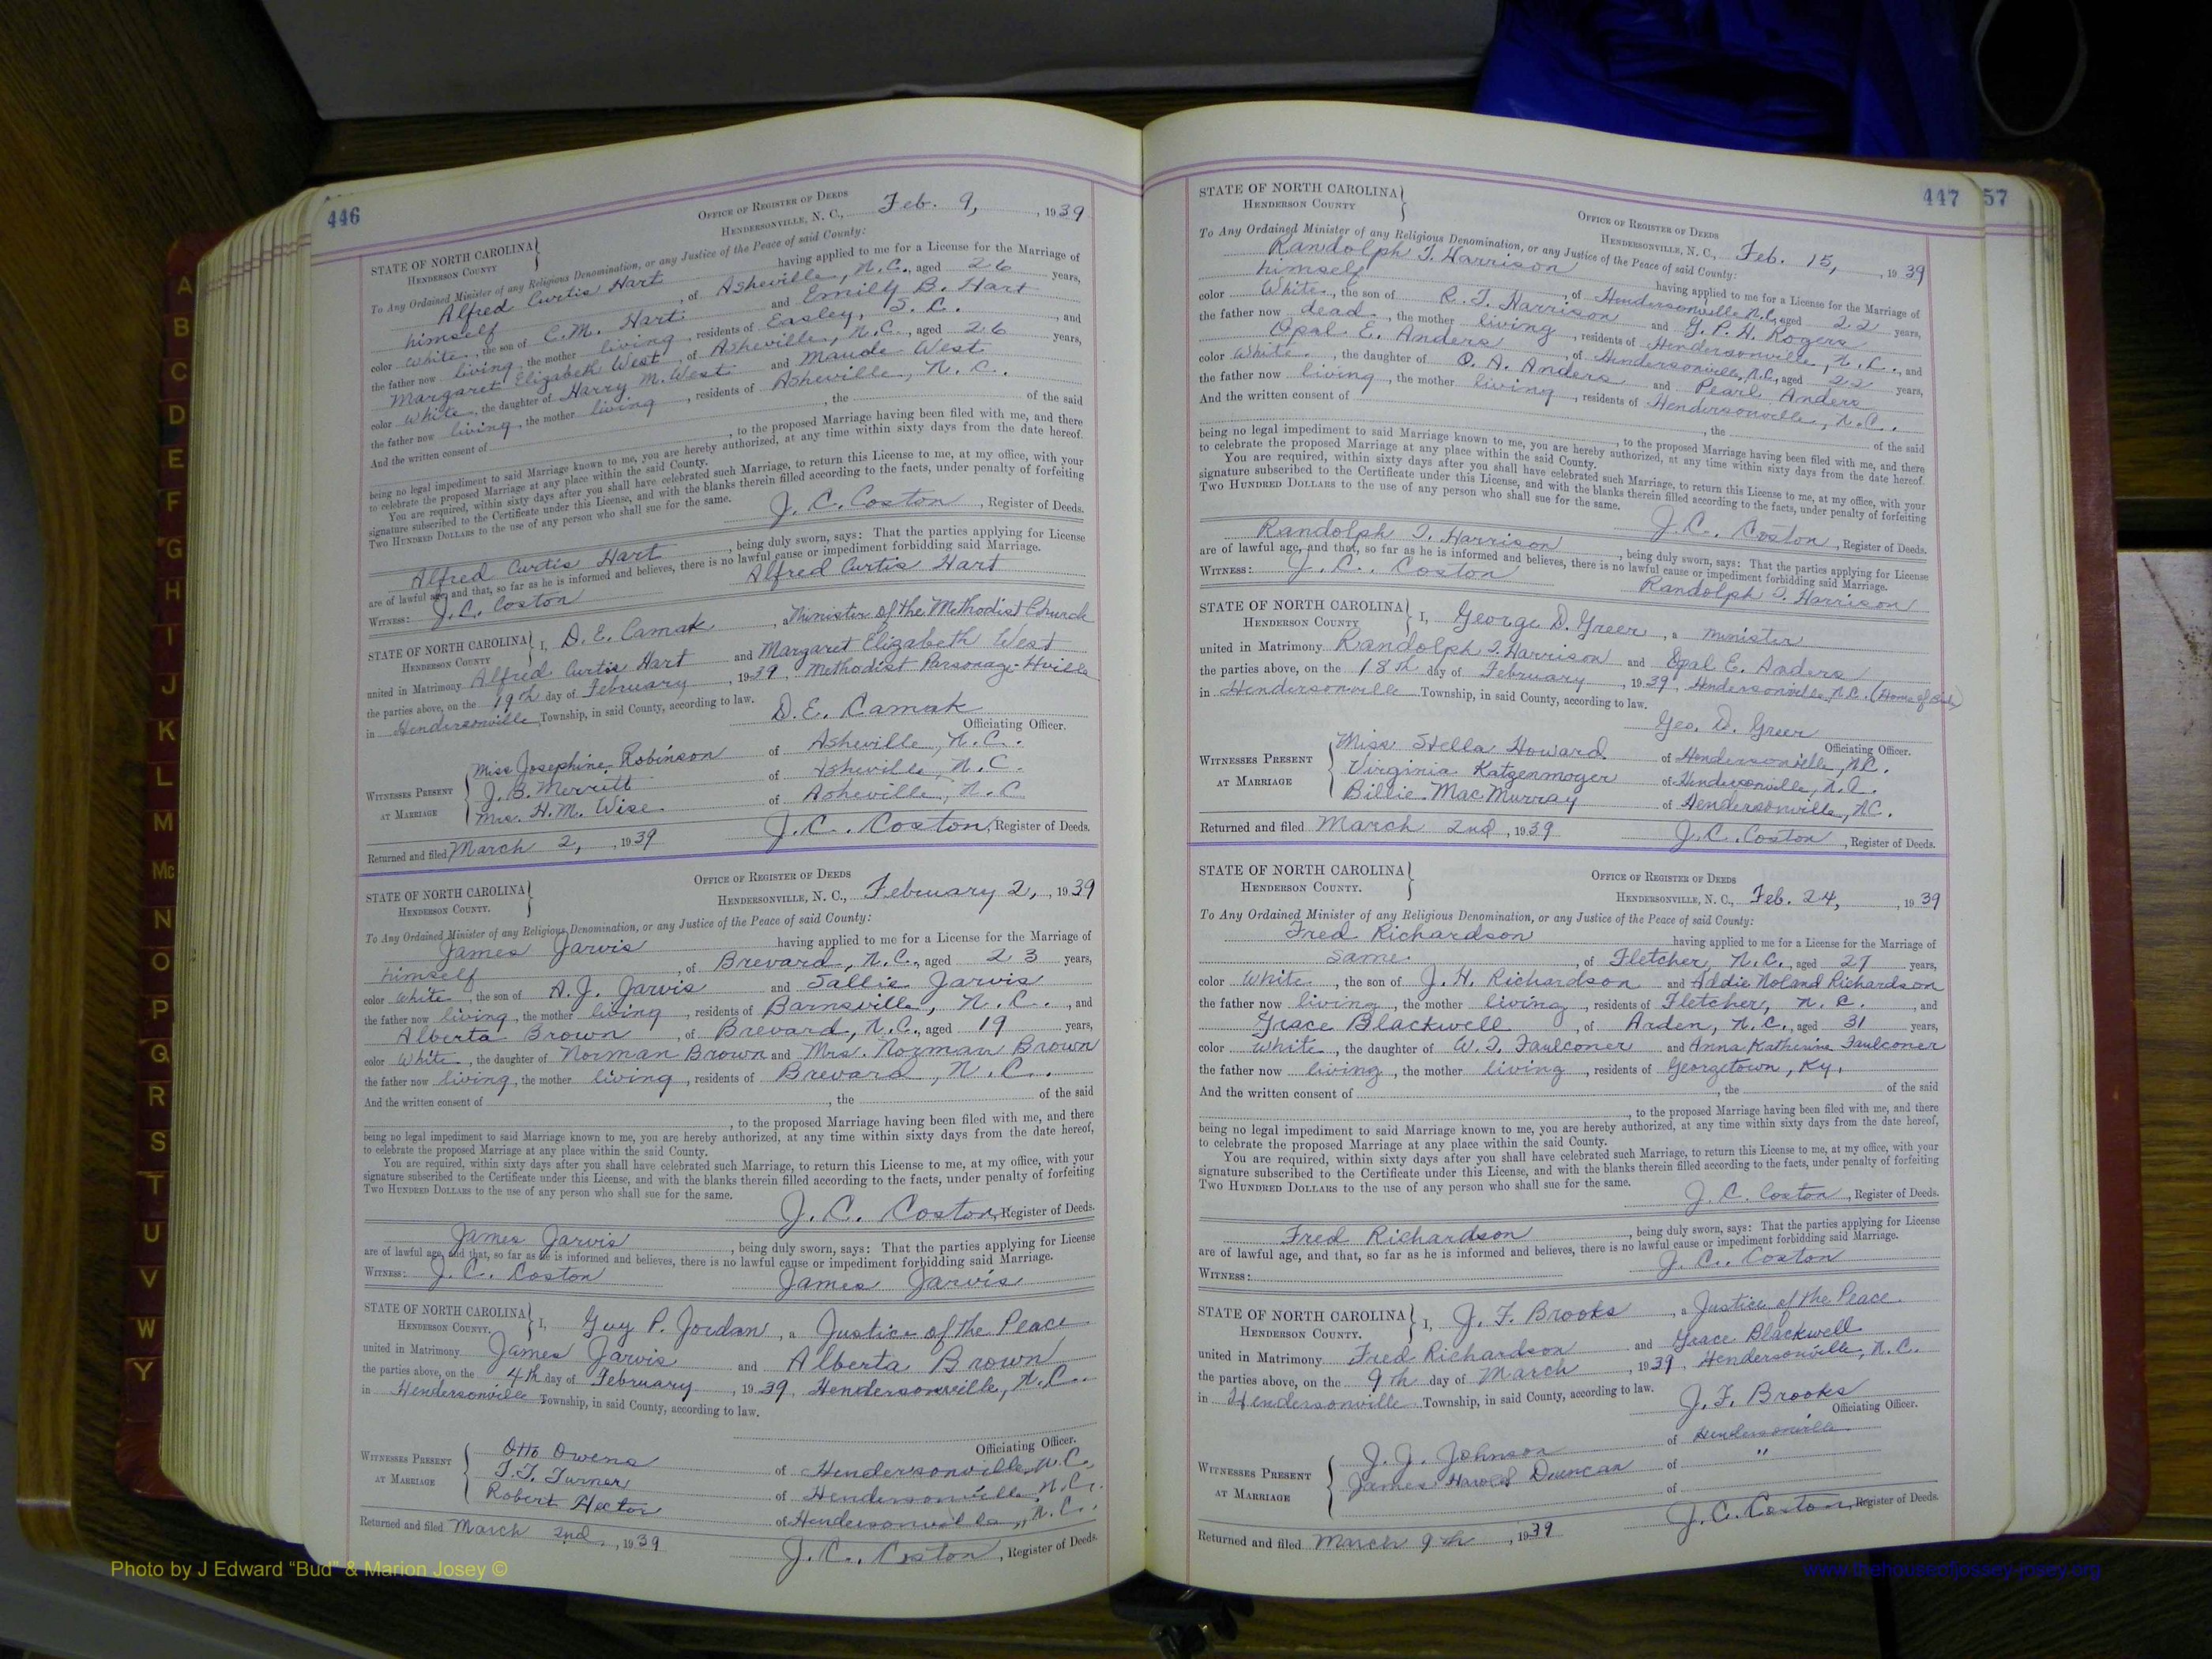 446
OFFICE OF REGISTER OF DEEDS
HENDERSONVILLE, N. C., Feb. 9, , 1939
STATE OF NORTH CAROLINA
HENDERSON COUNTY
To Any Ordained Minister of any Religious Denomination, or any Justice of the Peace of said County:
Alfred Curtis Hart having applied to me for a License for the Marriage of
himself , of Asheville, N.C., aged 26 years,
color White , the son of C.M. Hart and Emily B. Hart
the father now living , the mother living , residents of Easley, S.C. , and
Margaret Elizabeth West , of Asheville, N.C., aged 26 years,
color White , the daughter of Harry M. West and Maude West
the father now living , the mother living , residents of Asheville, N.C.
And the written consent of , the of the said
, to the proposed Marriage having been filed with me, and there
being no legal impediment to said Marriage known to me, you are hereby authorized, at any time within sixty days from the date hereof,
to celebrate the proposed Marriage at any place within the said County.
You are required, within sixty days after you shall have celebrated such Marriage, to return this License to me, at my office, with your
signature subscribed to the Certificate under this License, and with the blanks therein filled according to the facts, under penalty of forfeiting
TWO HUNDRED DOLLARS to the use of any person who shall sue for the same.
J. C. Coston , Register of Deeds.
Alfred Curtis Hart , being duly sworn, says: That the parties applying for License
are of lawful age, and that, so far as he is informed and believes, there is no lawful cause or impediment forbidding said Marriage.
WITNESS: J. C. Coston Alfred Curtis Hart
STATE OF NORTH CAROLINA
HENDERSON COUNTY
I, D. E. Camak , a Minister of the Methodist Church
united in Matrimony Alfred Curtis Hart and Margaret Elizabeth West
the parties above, on the 19th day of February , 1939, Methodist Parsonage-Hville
in Hendersonville Township, in said County, according to law.
D. E. Camak
Officiating Officer.
WITNESSES PRESENT
AT MARRIAGE
Miss Josephine Robinson of Asheville, N.C.
J. B. Merritt of Asheville, N.C.
Mrs. H.M. Wise of Asheville, N.C
Returned and filed March 2, , 1939 J. C. Coston, Register of Deeds.
OFFICE OF REGISTER OF DEEDS
HENDERSONVILLE, N. C., February 2, , 1939
STATE OF NORTH CAROLINA
HENDERSON COUNTY.
To Any Ordained Minister of any Religious Denomination, or any Justice of the Peace of said County:
James Jarvis having applied to me for a License for the Marriage of
himself , of Brevard, N.C., aged 23 years,
color White , the son of A. J. Jarvis and Sallie Jarvis
the father now living , the mother living , residents of Barnsville, N.C. , and
Alberta Brown , of Brevard, N.C., aged 19 years,
color White , the daughter of Norman Brown and Mrs. Norman Brown
the father now living , the mother living , residents of Brevard, N.C.
And the written consent of , the of the said
, to the proposed Marriage having been filed with me, and there
being no legal impediment to said Marriage known to me, you are hereby authorized, at any time within sixty days from the date hereof,
to celebrate the proposed Marriage at any place within the said County.
You are required, within sixty days after you shall have celebrated such Marriage, to return this License to me, at my office, with your
signature subscribed to the Certificate under this License, and with the blanks therein filled according to the facts, under penalty of forfeiting
TWO HUNDRED DOLLARS to the use of any person who shall sue for the same.
J. C. Coston, Register of Deeds.
James Jarvis , being duly sworn, says: That the parties applying for License
are of lawful age, and that, so far as he is informed and believes, there is no lawful cause or impediment forbidding said Marriage.
WITNESS: J. C. Coston James Jarvis
STATE OF NORTH CAROLINA
HENDERSON COUNTY.
I, Guy P. Jordan , a Justice of the Peace
united in Matrimony James Jarvis and Alberta Brown
the parties above, on the 4th day of February , 1939, Hendersonville, N.C.
in Hendersonville Township, in said County, according to law.
Officiating Officer.
WITNESSES PRESENT
AT MARRIAGE
Otto Owens of Hendersonville, N.C.
T.T. Turner of Hendersonville, N.C.
Robert Hector of Hendersonville, N.C.
Returned and filed March 2nd , 1939 J. C. Coston , Register of Deeds.
447
57
STATE OF NORTH CAROLINA
HENDERSON COUNTY
OFFICE OF REGISTER OF DEEDS
HENDERSONVILLE, N. C., Feb. 15, , 1939
To Any Ordained Minister of any Religious Denomination, or any Justice of the Peace of said County:
Randolph T. Harrison having applied to me for a License for the Marriage of
himself , of Hendersonville N.C, aged 22 years,
color White , the son of R. T. Harrison and G. P. H. Rogers
the father now dead , the mother living , residents of Hendersonville, N.C. , and
Opal E. Anders , of Hendersonville, N.C., aged 22 years,
color White , the daughter of O. A. Anders and Pearl Anders
the father now living , the mother living , residents of Hendersonville, N.C.
And the written consent of , the of the said
, to the proposed Marriage having been filed with me, and there
being no legal impediment to said Marriage known to me, you are hereby authorized, at any time within sixty days from the date hereof.
to celebrate the proposed Marriage at any place within the said County.
You are required, within sixty days after you shall have celebrated such Marriage, to return this License to me, at my office, with your
signature subscribed to the Certificate under this License, and with the blanks therein filled according to the facts, under penalty of forfeiting
TWO HUNDRED DOLLARS to the use of any person who shall sue for the same.
J. C. Coston , Register of Deeds.
Randolph T. Harrison , being duly sworn, says: That the parties applying for License
are of lawful age, and that, so far as he is informed and believes, there is no lawful cause or impediment forbidding said Marriage.
WITNESS: J. C. Coston Randolph T. Harrison
STATE OF NORTH CAROLINA
HENDERSON COUNTY
I, George D. Greer , a Minister
united in Matrimony Randolph T. Harrison and Opal E. Anders
the parties above, on the 18th day of February , 1939, Hendersonville, N.C. (Home of Bride)
in Hendersonville Township, in said County, according to law.
Geo. D. Greer
Officiating Officer.
WITNESSES PRESENT
AT MARRIAGE
Miss Stella Howard of Hendersonville, N.C.
Virginia Katzenmoyer of Hendersonville, N.C.
Billie MacMurray of Hendersonville, N.C.
Returned and filed March 2nd , 1939 J. C. Coston , Register of Deeds.
STATE OF NORTH CAROLINA
HENDERSON COUNTY.
OFFICE OF REGISTER OF DEEDS
HENDERSONVILLE, N. C., Feb. 24, , 1939
To Any Ordained Minister of any Religious Denomination, or any Justice of the Peace of said County:
Fred Richardson having applied to me for a License for the Marriage of
same , of Fletcher, N.C., aged 27 years,
color White , the son of J. H. Richardson and Addie Noland Richardson
the father now living , the mother living , residents of Fletcher, N.C. , and
Grace Blackwell , of Arden, N.C., aged 31 years,
color White , the daughter of W. T. Faulconer and Anna Katherine Faulconer
the father now living , the mother living , residents of Georgetown, Ky.
And the written consent of , the of the said
, to the proposed Marriage having been filed with me, and there
being no legal impediment to said Marriage known to me, you are hereby authorized, at any time within sixty days from the date hereof,
to celebrate the proposed Marriage at any place within the said County.
You are required, within sixty days after you shall have celebrated such Marriage, to return this License to me, at my office, with your
signature subscribed to the Certificate under this License, and with the blanks therein filled according to the facts, under penalty of forfeiting
TWO HUNDRED DOLLARS to the use of any person who shall sue for the same.
J. C. Coston , Register of Deeds.
Fred Richardson , being duly sworn, says: That the parties applying for License
are of lawful age, and that, so far as he is informed and believes, there is no lawful cause or impediment forbidding said Marriage.
WITNESS: J. C. Coston
STATE OF NORTH CAROLINA
HENDERSON COUNTY.
I, J. F. Brooks , a Justice of the Peace
united in Matrimony Fred Richardson and Grace Blackwell
the parties above, on the 9th day of March , 1939, Hendersonville, N.C.
in Hendersonville Township, in said County, according to law.
J. F. Brooks
Officiating Officer.
WITNESSES PRESENT
AT MARRIAGE
J. J. Johnson of Hendersonville
James Harold Duncan of "
of
Returned and filed March 9th , 1939 J. C. Coston, Register of Deeds.
A
B
C
D
E
F
G
H
I
J
K
L
M
Mc
N
O
P
Q
R
S
T
U
V
W
Y
Photo by J Edward “Bud” & Marion Josey ©
www.thehouseofjossey-josey.org